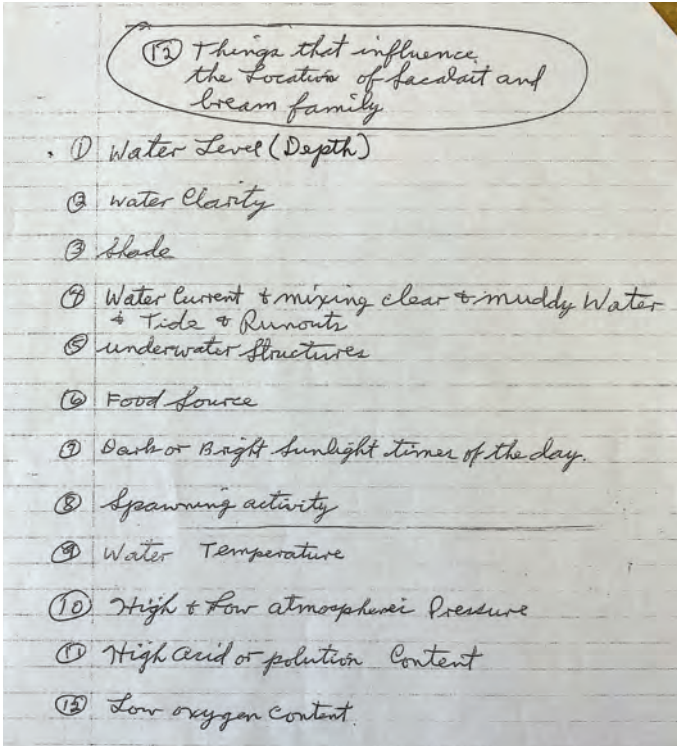 ⑫ Things that influence
the Location of Sacalait and
bream family
① Water Level (Depth)
② Water Clarity
③ Shade
④ Water Current & mixing clear & muddy Water
& Tide & Runouts
⑤ underwater Structures
⑥ Food Source
⑦ Dark or Bright Sunlight times of the day.
⑧ Spawning activity
⑨ Water Temperature
⑩ High & Low atmospheric Pressure
⑪ High acid or polution Content
⑫ Low oxygen content.